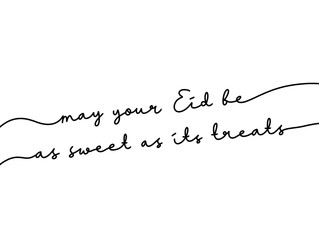 may your Eid be
as sweet as its treats